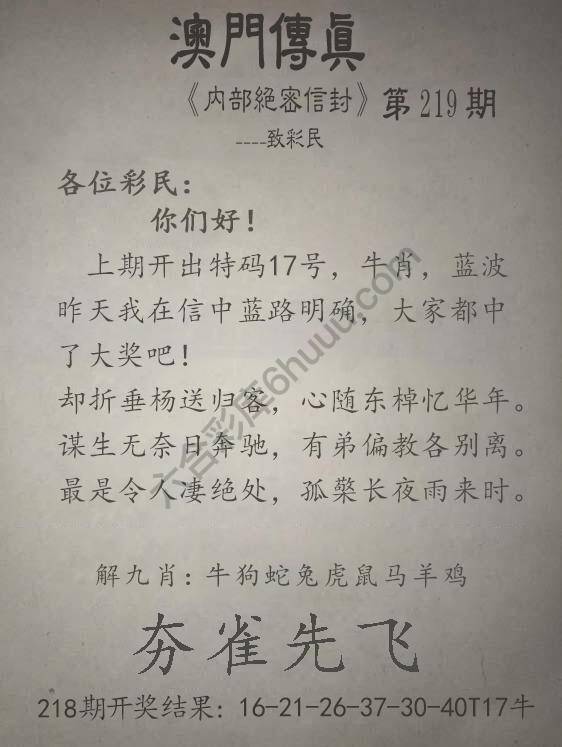 澳門傳眞
《内部絕密信封》第219期
----致彩民
各位彩民：
你们好！
上期开出特码17号，牛肖，蓝波
昨天我在信中蓝路明确，大家都中
了大奖吧！
却折垂杨送归客，心随东棹忆华年。
谋生无奈日奔驰，有弟偏教各别离。
最是令人凄绝处，孤檠长夜雨来时。
解九肖：牛狗蛇兔虎鼠马羊鸡
夯雀先飞
218期开奖结果：16-21-26-37-30-40T17牛
六合彩库6huuu.com